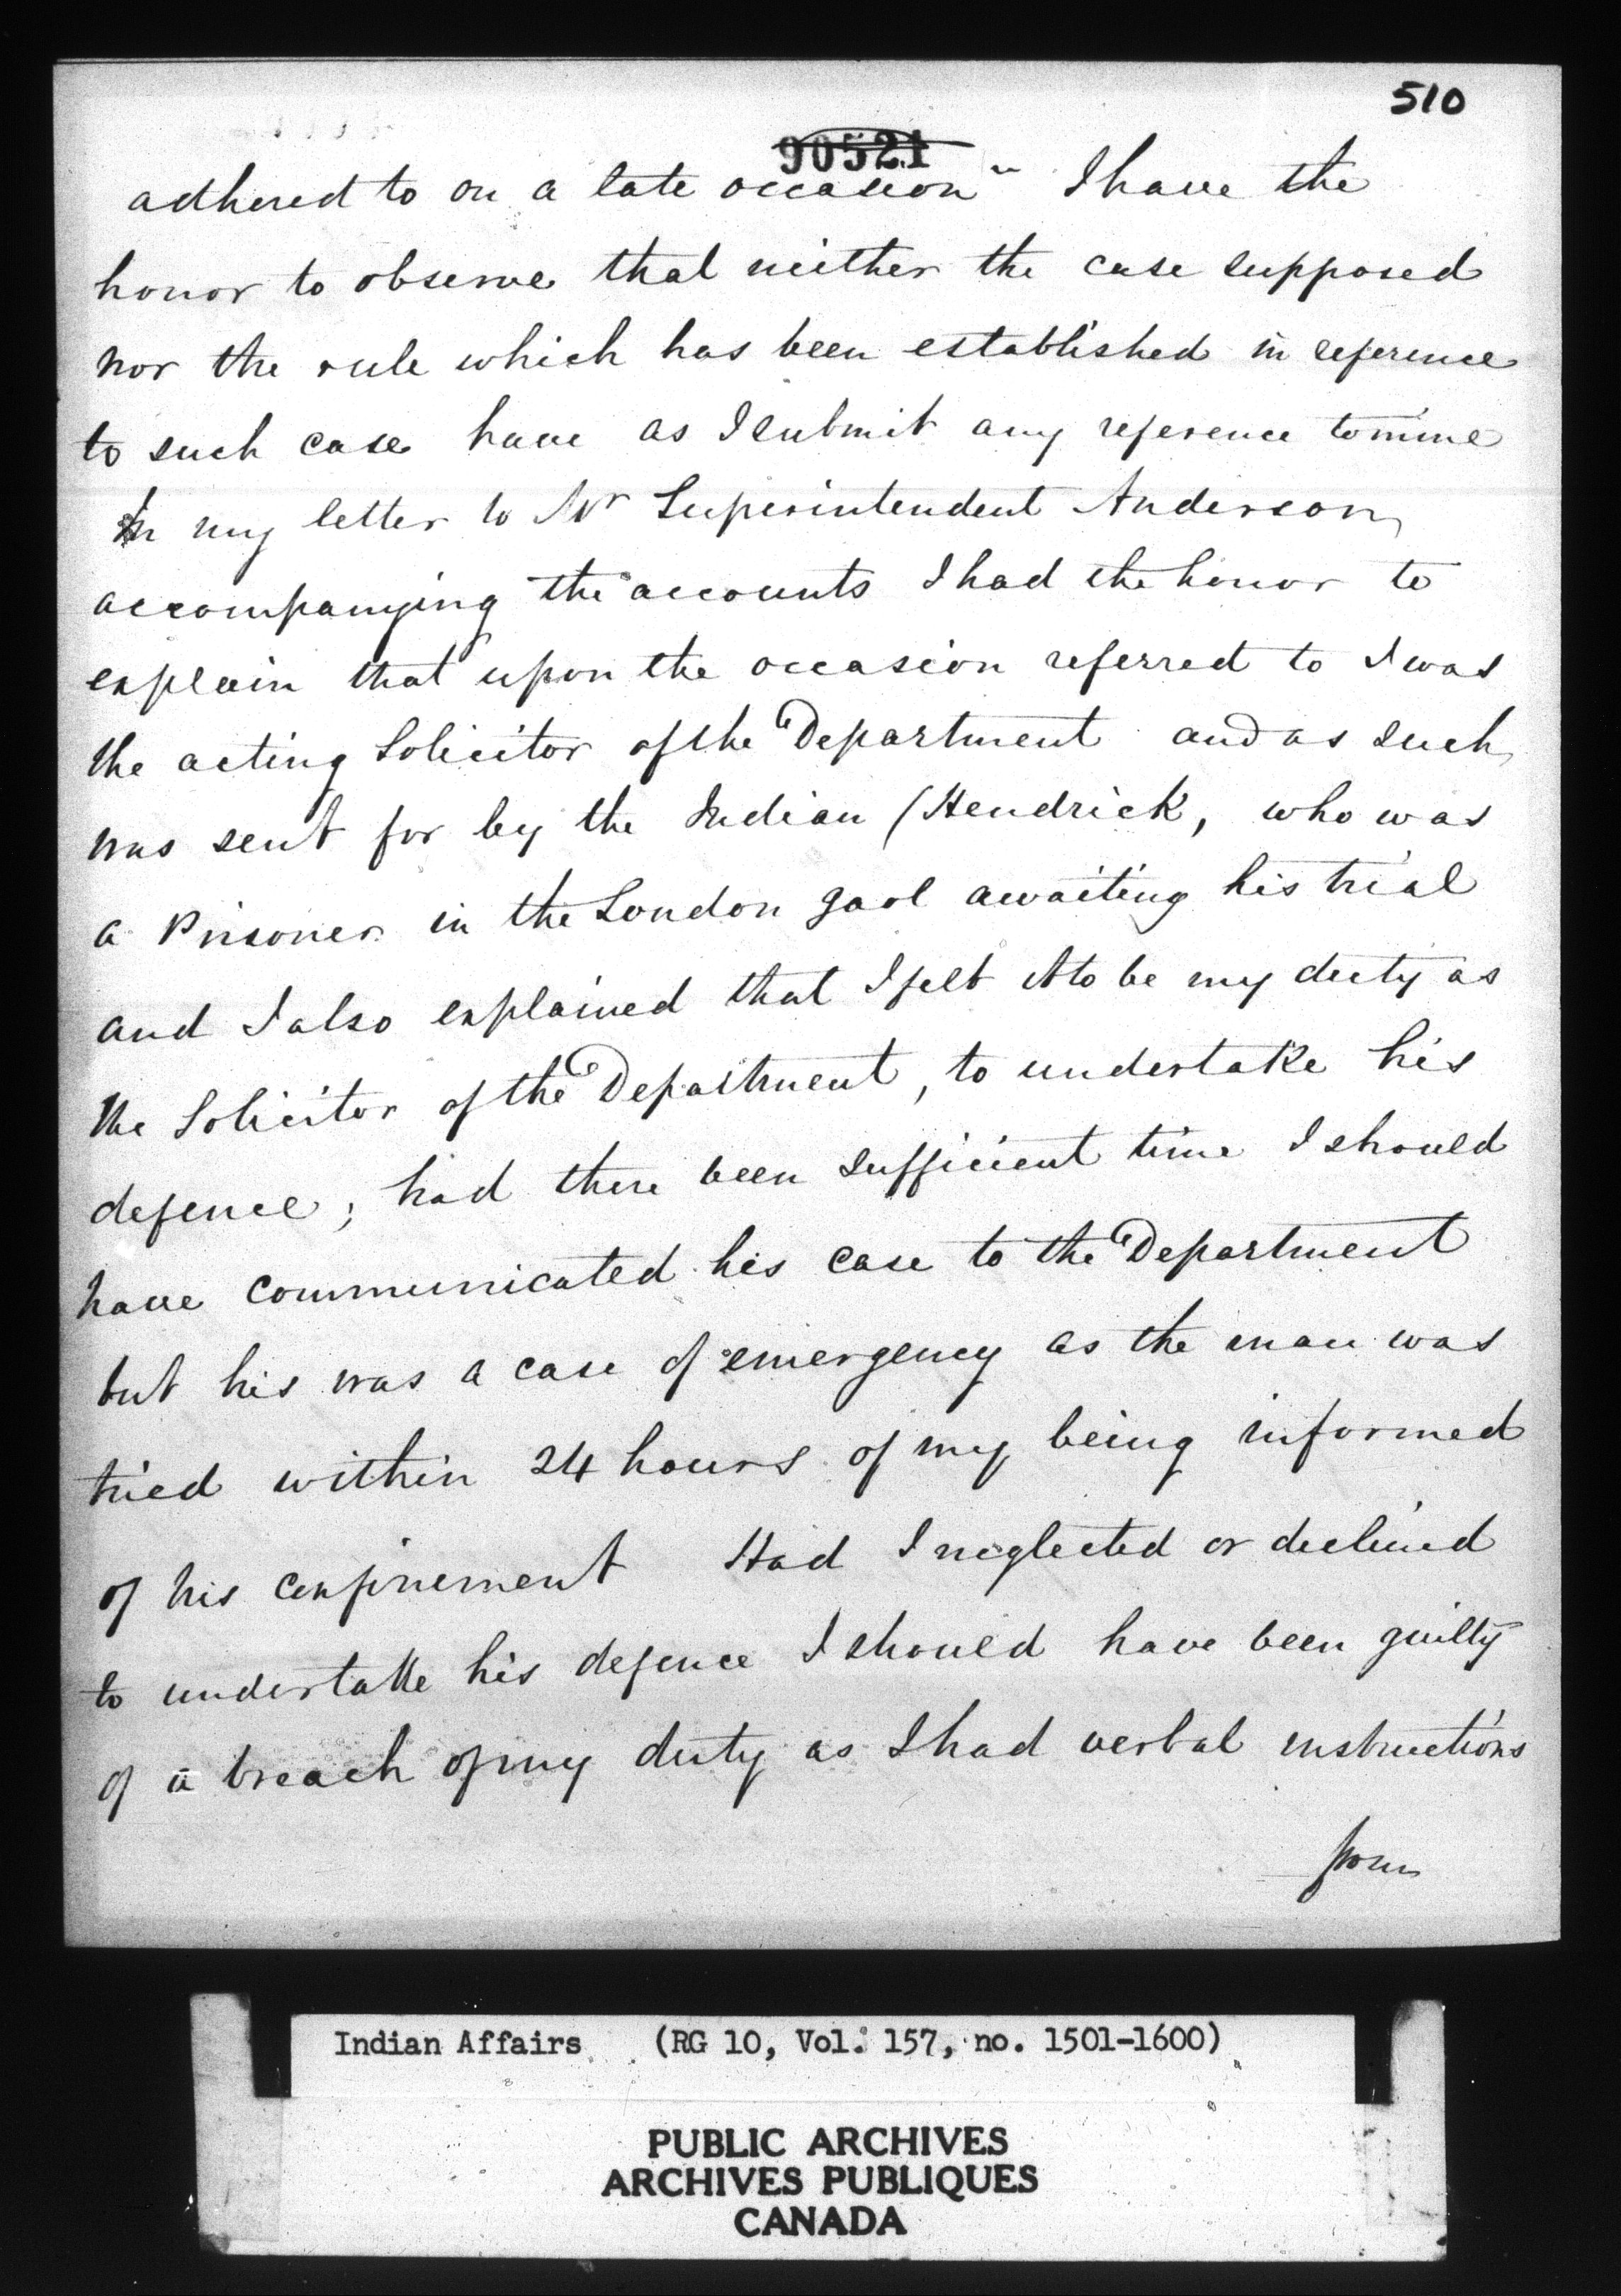 510
90521
adhered to on a late occasion" I have the
honor to observe that neither the case supposed
nor the rule which has been established in reference
to such case have as I submit any reference to mine
In my letter to Mr Superintendent Anderson,
accompanying the accounts I had the honor to
explain that upon the occasion referred to I was
the acting Solicitor of the Department and as such,
was sent for by the Indian (Hendrick, who was
a Prisoner in the London gaol awaiting his trial
and I also explained that I felt it to be my duty as
the Solicitor of the Department, to undertake his
defence; had there been sufficient time I should
have communicated his case to the Department
but his was a case of emergency as the man was
tried within 24 hours of my being informed
of his confinement Had I neglected or declined
to undertake his defence I should have been guilty
of a breach of my duty as I had verbal instructions
from
Indian Affairs (RG 10, Vol. 157, no. 1501-1600)
PUBLIC ARCHIVES
ARCHIVES PUBLIQUES
CANADA